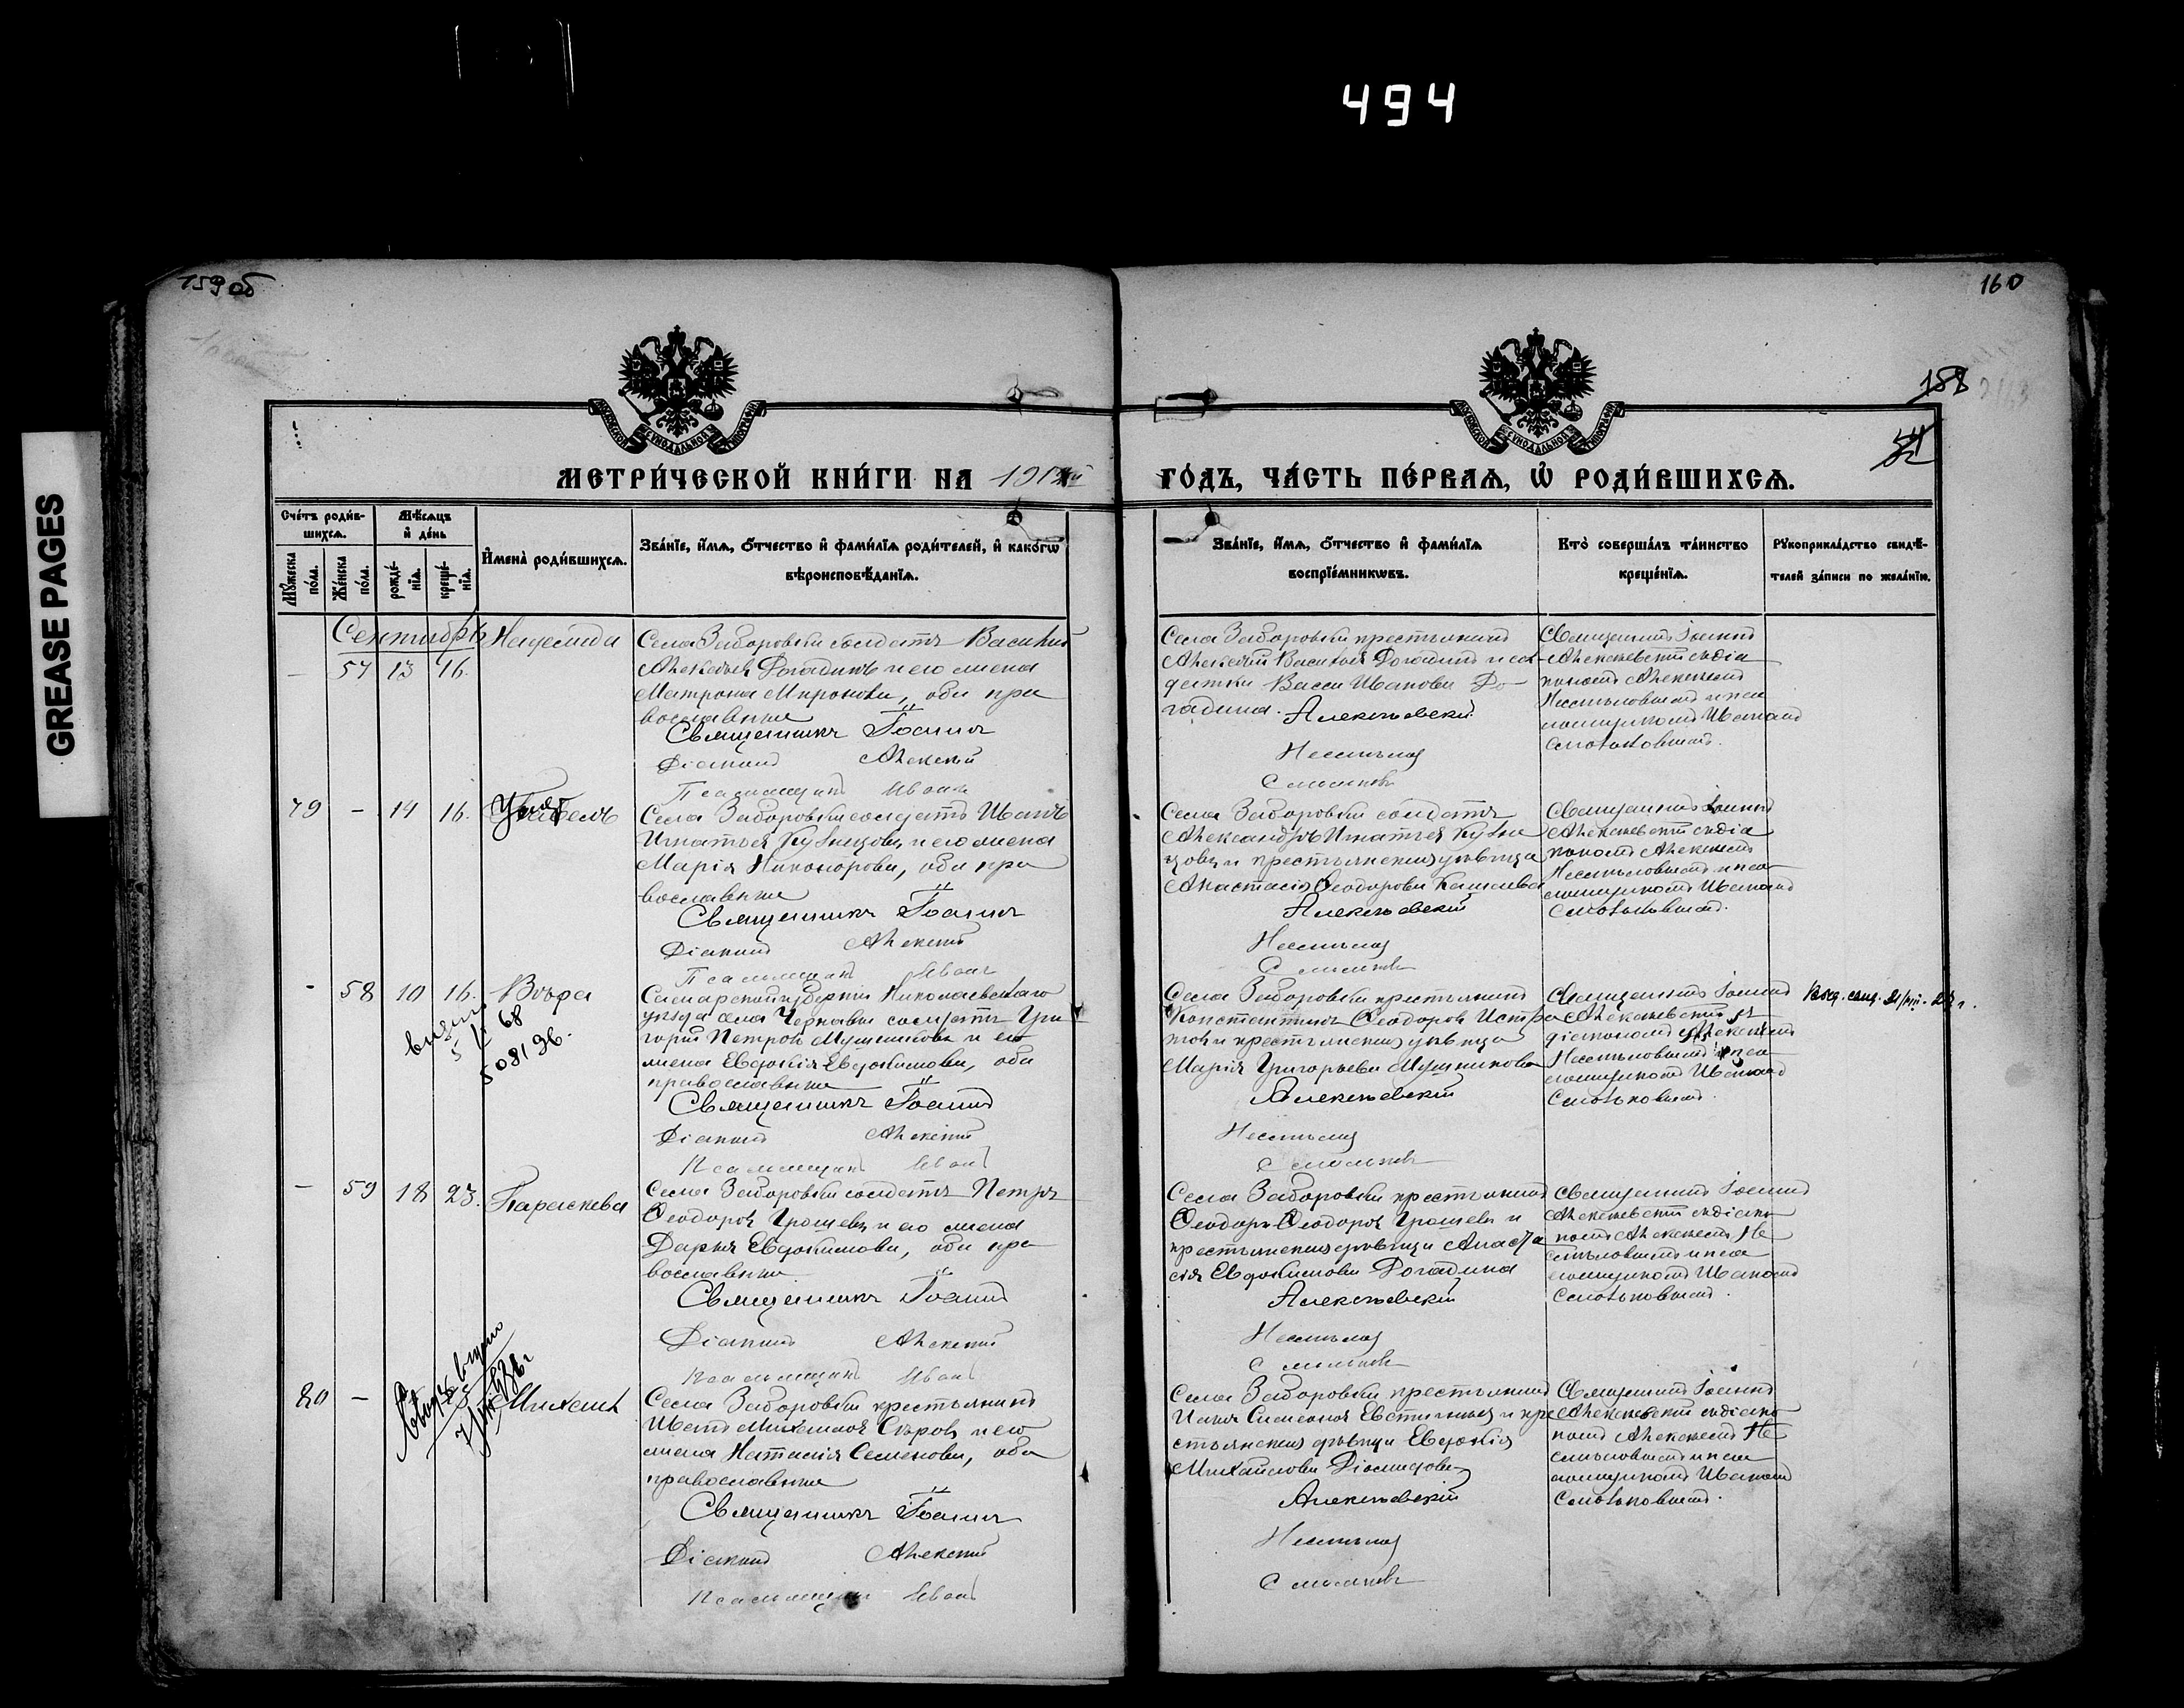 494
GREASE PAGES
159об
160
158
МЕТРИ́ЧЕСКОЙ КНИ́ГИ НА 191
ГО́ДЪ, ЧА́СТЬ ПЕ́РВАѦ, Ѡ҆ РОДИ́ВШИХСѦ.
Сче́тъ роди́в-
шихсѧ.
Мѣ́сѧцъ
и҆ де́нь
Мꙋ́жеска
по́ла.
Же́нска
по́ла.
рожде́-
нїѧ.
креще́-
нїѧ.
И҆мена̀ роди́вшихсѧ.
Зва́нїе, и҆́мѧ, ѻ҆́тчество и҆ фами́лїѧ роди́телей, и҆ како́гѡ
вѣроисповѣ́данїѧ.
Зва́нїе, и҆́мѧ, ѻ҆́тчество и҆ фами́лїѧ
воспрїе́мникѡвъ.
Кто̀ соверша́лъ та́инство
креще́нїѧ.
Рꙋкоприкла́дство свидѣ́-
телей за́писи по жела́нїю.
Сентябрь
57 13 16.
Села Заборовки солдатъ Василий
Алексѣевъ Догадинъ и его жена
Матрона Миронова, оба пра
вославные
Священникъ Іоаннъ
Діаконъ Алексий
Псаломщикъ Иванъ
Села Заборовки крестьянинъ
Алексѣй Васильев Догадинъ и сол-
датка Васса Иванова До-
гадина.
Алексѣевскій
Несмѣлов
Смольков
Священникъ Іоаннъ
Алексѣевскій съ діа
кономъ Алексѣемъ
Несмѣловымъ и пса
ломщикомъ Иваномъ
Смольковымъ.
79 – 14 16.
Села Заборовки солдатъ Иванъ
Игнатьев Кузнецовъ и его жена
Марія Никонорова, оба пра
вославные
Священникъ Іоаннъ
Діаконъ Алексий
Псаломщикъ Иванъ
Села Заборовки солдатъ
Александръ Игнатьев Кузне
цовъ и крестьянская дѣвица
Анастасія Ѳеодорова Кашаева
Алексѣевскій
Несмѣлов
Смольков
Священникъ Іоаннъ
Алексѣевскій съ діа
кономъ Алексѣемъ
Несмѣловымъ и пса
ломщикомъ Иваномъ
Смольковымъ.
- 58 10 16. Вѣра
508196.
Самарской губерніи Николаевскаго
уѣзда села Чернавки солдатъ Гри
горій Петров Мушников и его
жена Евдокія Евдокимова, оба
православные
Священникъ Іоаннъ
Діаконъ Алексий
Псаломщикъ Иванъ
Села Заборовки крестьянинъ
Константинъ Ѳеодоров Истра
тов и крестьянская дѣвица
Марія Григорьева Мушникова
Алексѣевскій
Несмѣлов
Смольков
Священникъ Іоаннъ
Алексѣевскій съ
діакономъ Алексѣемъ
Несмѣловымъ и пса
ломщикомъ Иваномъ
Смольковымъ.
– 59 18 23. Параскева
Села Заборовки солдатъ Петръ
Ѳеодоров Грошевъ и его жена
Дарья Евдокимова, оба пра
вославные
Священникъ Іоаннъ
Діаконъ Алексий
Псаломщикъ Иванъ
Села Заборовки крестьянинъ
Ѳеодоръ Ѳеодоров Грошевъ и
крестьянская дѣвица Анаста
сія Евдокимова Догадина
Алексѣевскій
Несмѣлов
Смольков
Священникъ Іоаннъ
Алексѣевскій съ діако
номъ Алексѣемъ Не
смѣловымъ и пса
ломщикомъ Иваномъ
Смольковымъ.
80 – Михаил
Села Заборовки крестьянинъ
Иванъ Михаилов Сѣровъ и его
жена Наталія Семенова, оба
православные
Священникъ Іоаннъ
Діаконъ Алексий
Псаломщикъ Иванъ
Села Заборовки крестьянинъ
и кре
стьянская дѣвица Евдокія
Михаилова Діомидова
Алексѣевскій
Несмѣлов
Смольков
Священникъ Іоаннъ
Алексѣевскій съ діако
номъ Алексѣемъ Не
смѣловымъ и пса
ломщикомъ Иваномъ
Смольковымъ.